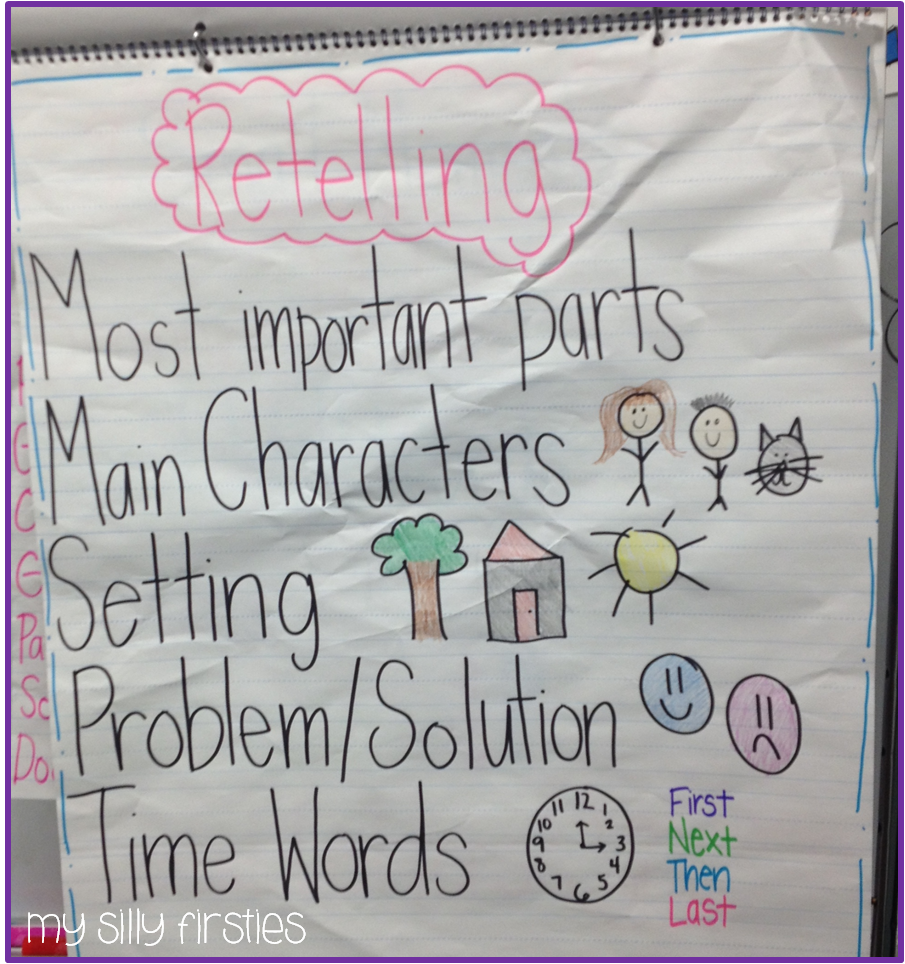 Retelling
Most important parts
Main Characters
Setting
Problem/Solution
Time Words
11 12 1
10 2
9 3
8 4
7 6 5
First
Next
Then
Last
my silly firsties